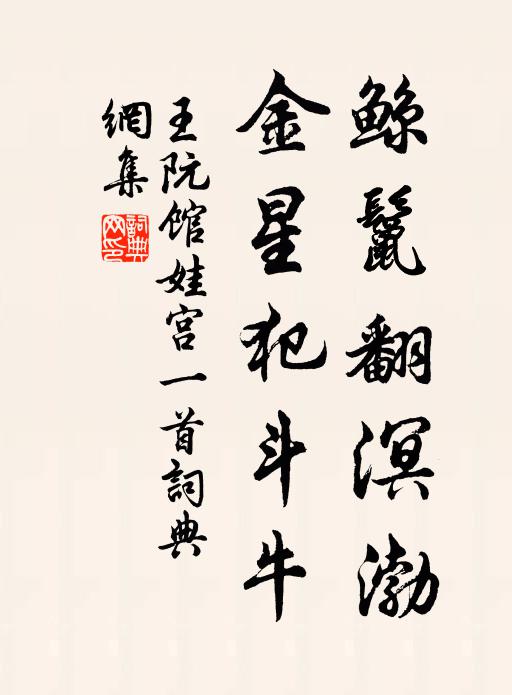 鲸鬣翻溟渤
金星犯斗牛
王阮馆娃宫一首詞典
網集
詞典网印